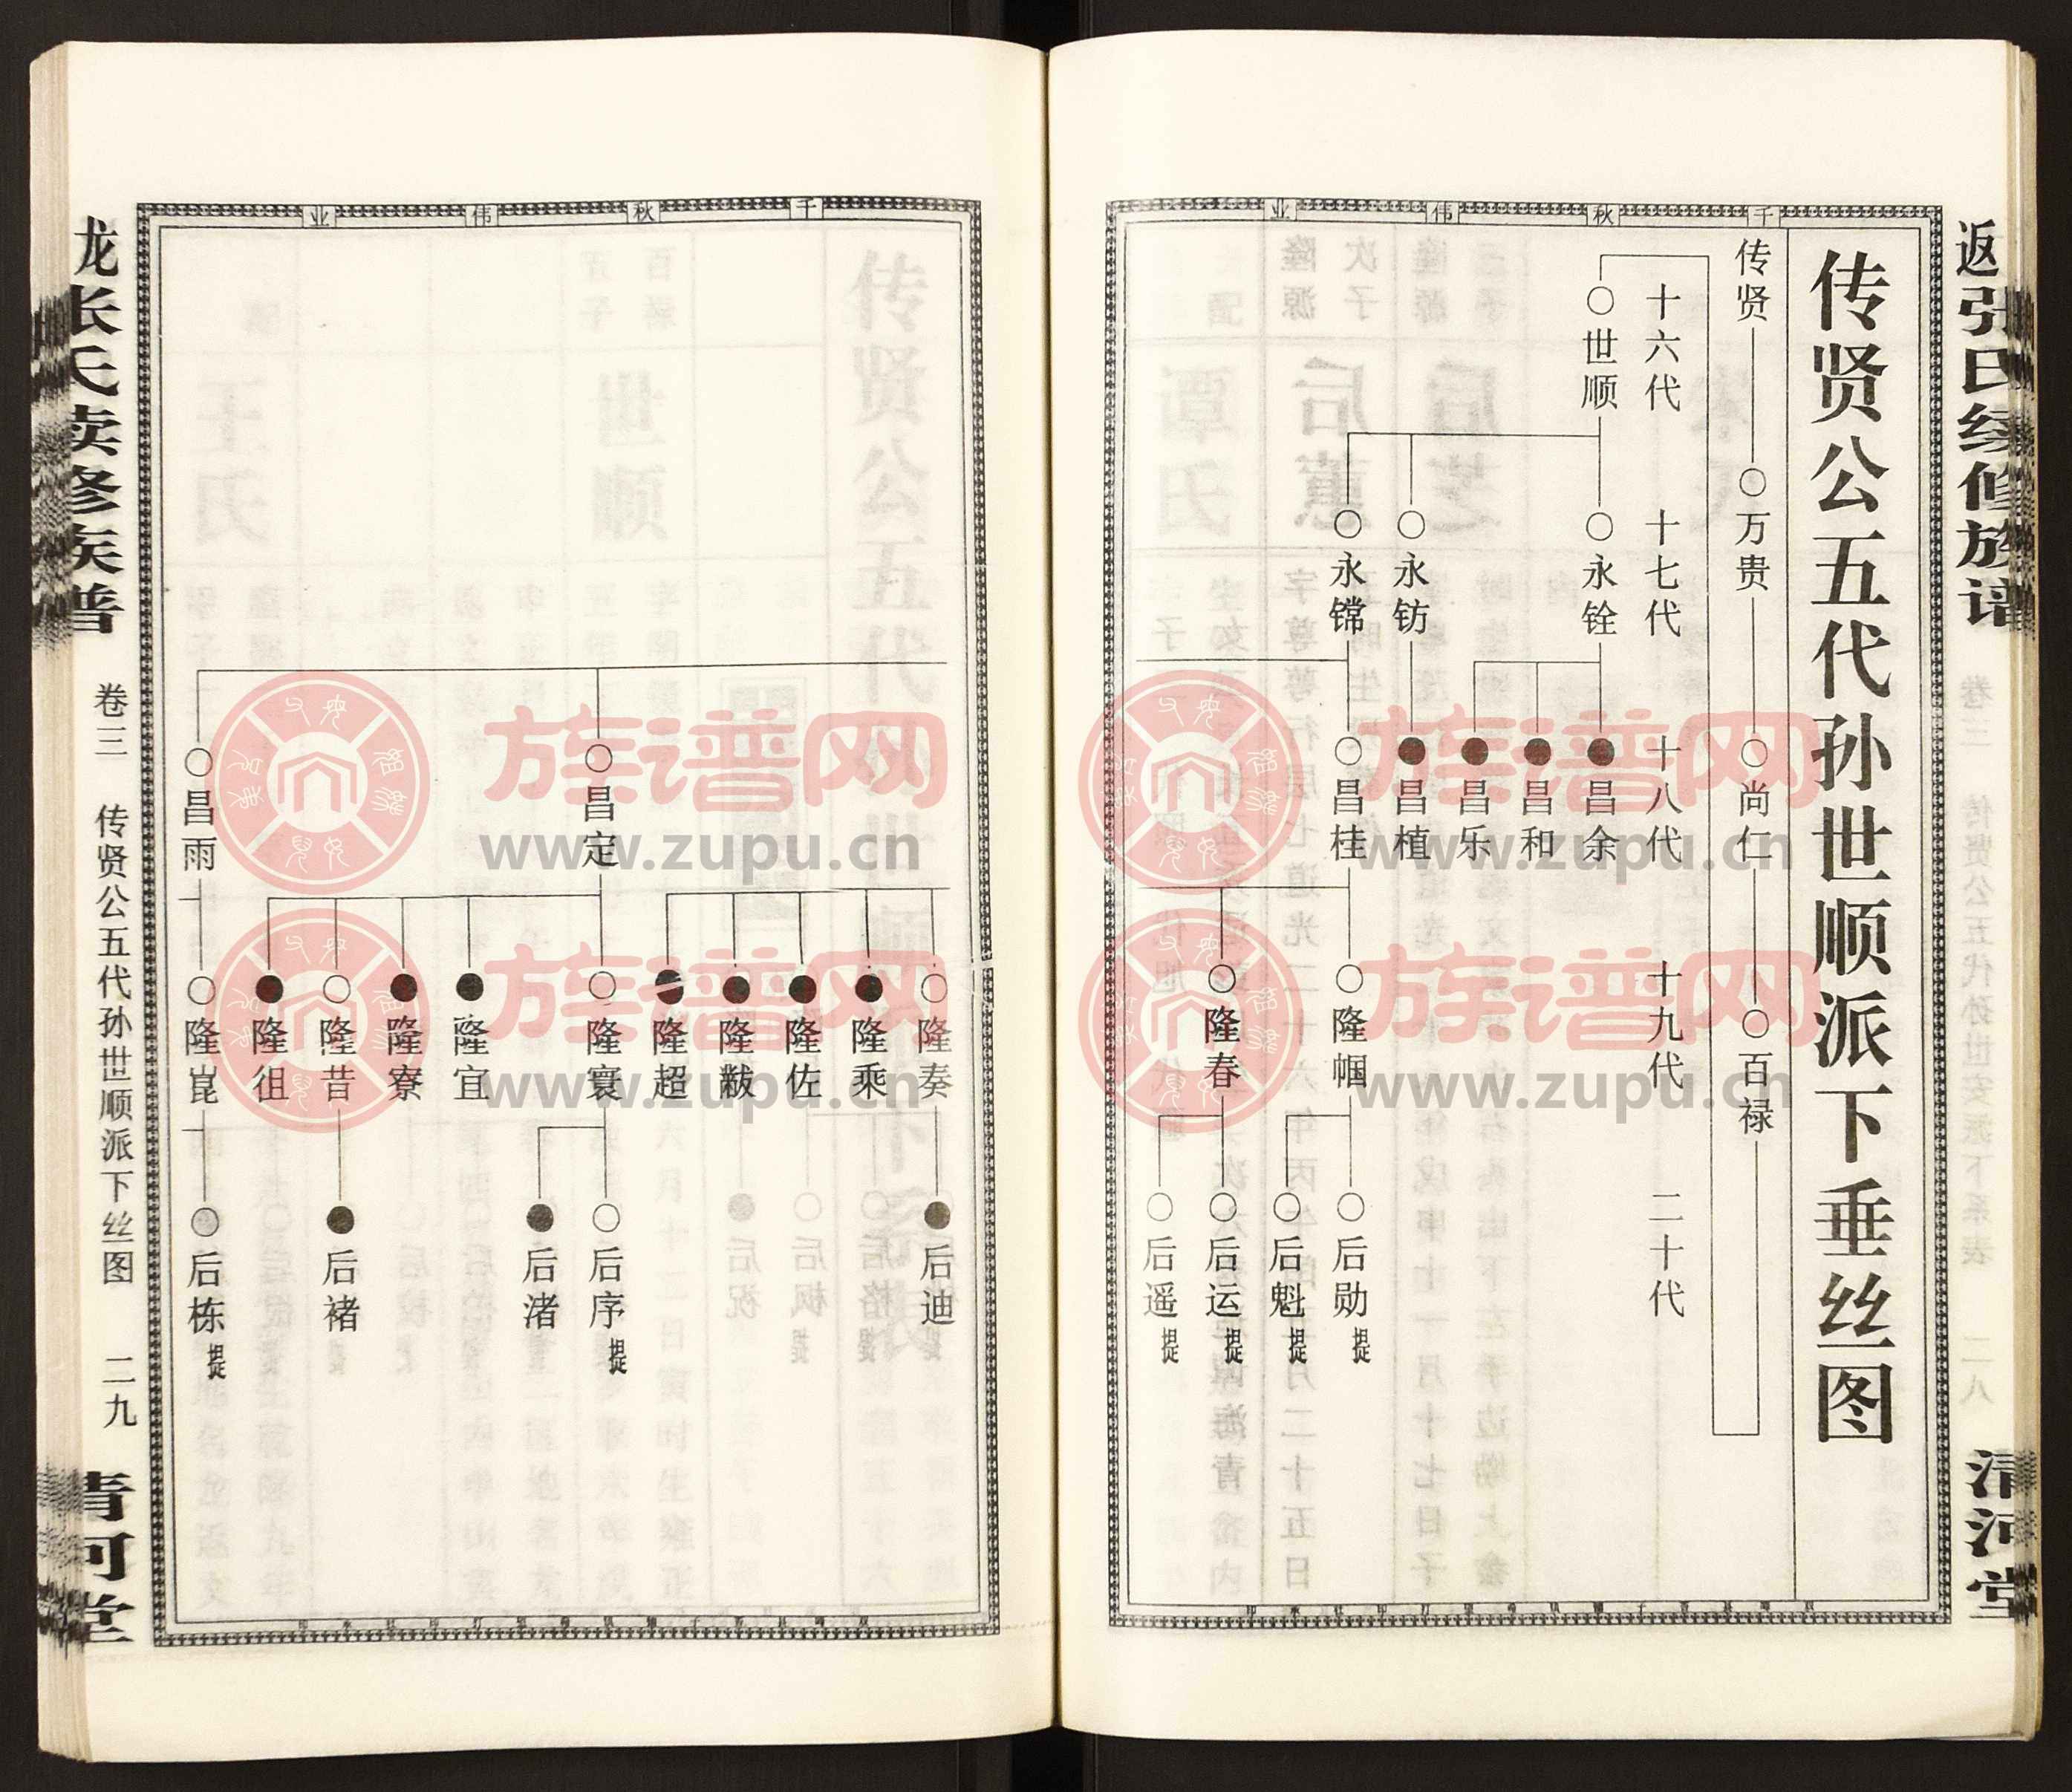 传贤公五代孙世顺派下垂丝图
传贤
万贵
尚仁
百禄
十六代
十七代
十八代
十九代
二十代
世顺
永铨
永钫
永镏
昌余
昌和
昌乐
昌植
昌桂
隆帼
隆春
后勋 提
后魁 提
后运 提
后遥 提
清河堂
千秋伟业
昌定
昌雨
隆奏
隆乘
隆佐
隆黻
隆超
隆寰
隆宜
隆寮
隆昔
隆徂
隆崑
后迪
后序 提
后渚
后褚
后栋 提
千秋伟业
卷三
传贤公五代孙世顺派下丝图
二九
族谱网
www.zupu.cn
族谱网
www.zupu.cn
族谱网
www.zupu.cn
族谱网
www.zupu.cn